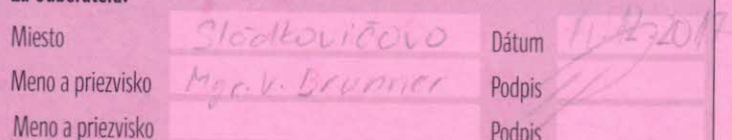 Za odberateľa:
Miesto Slódkovičovo Dátum 11.12.2017
Meno a priezvisko Mgr. V. Brunner Podpis
Meno a priezvisko Podpis